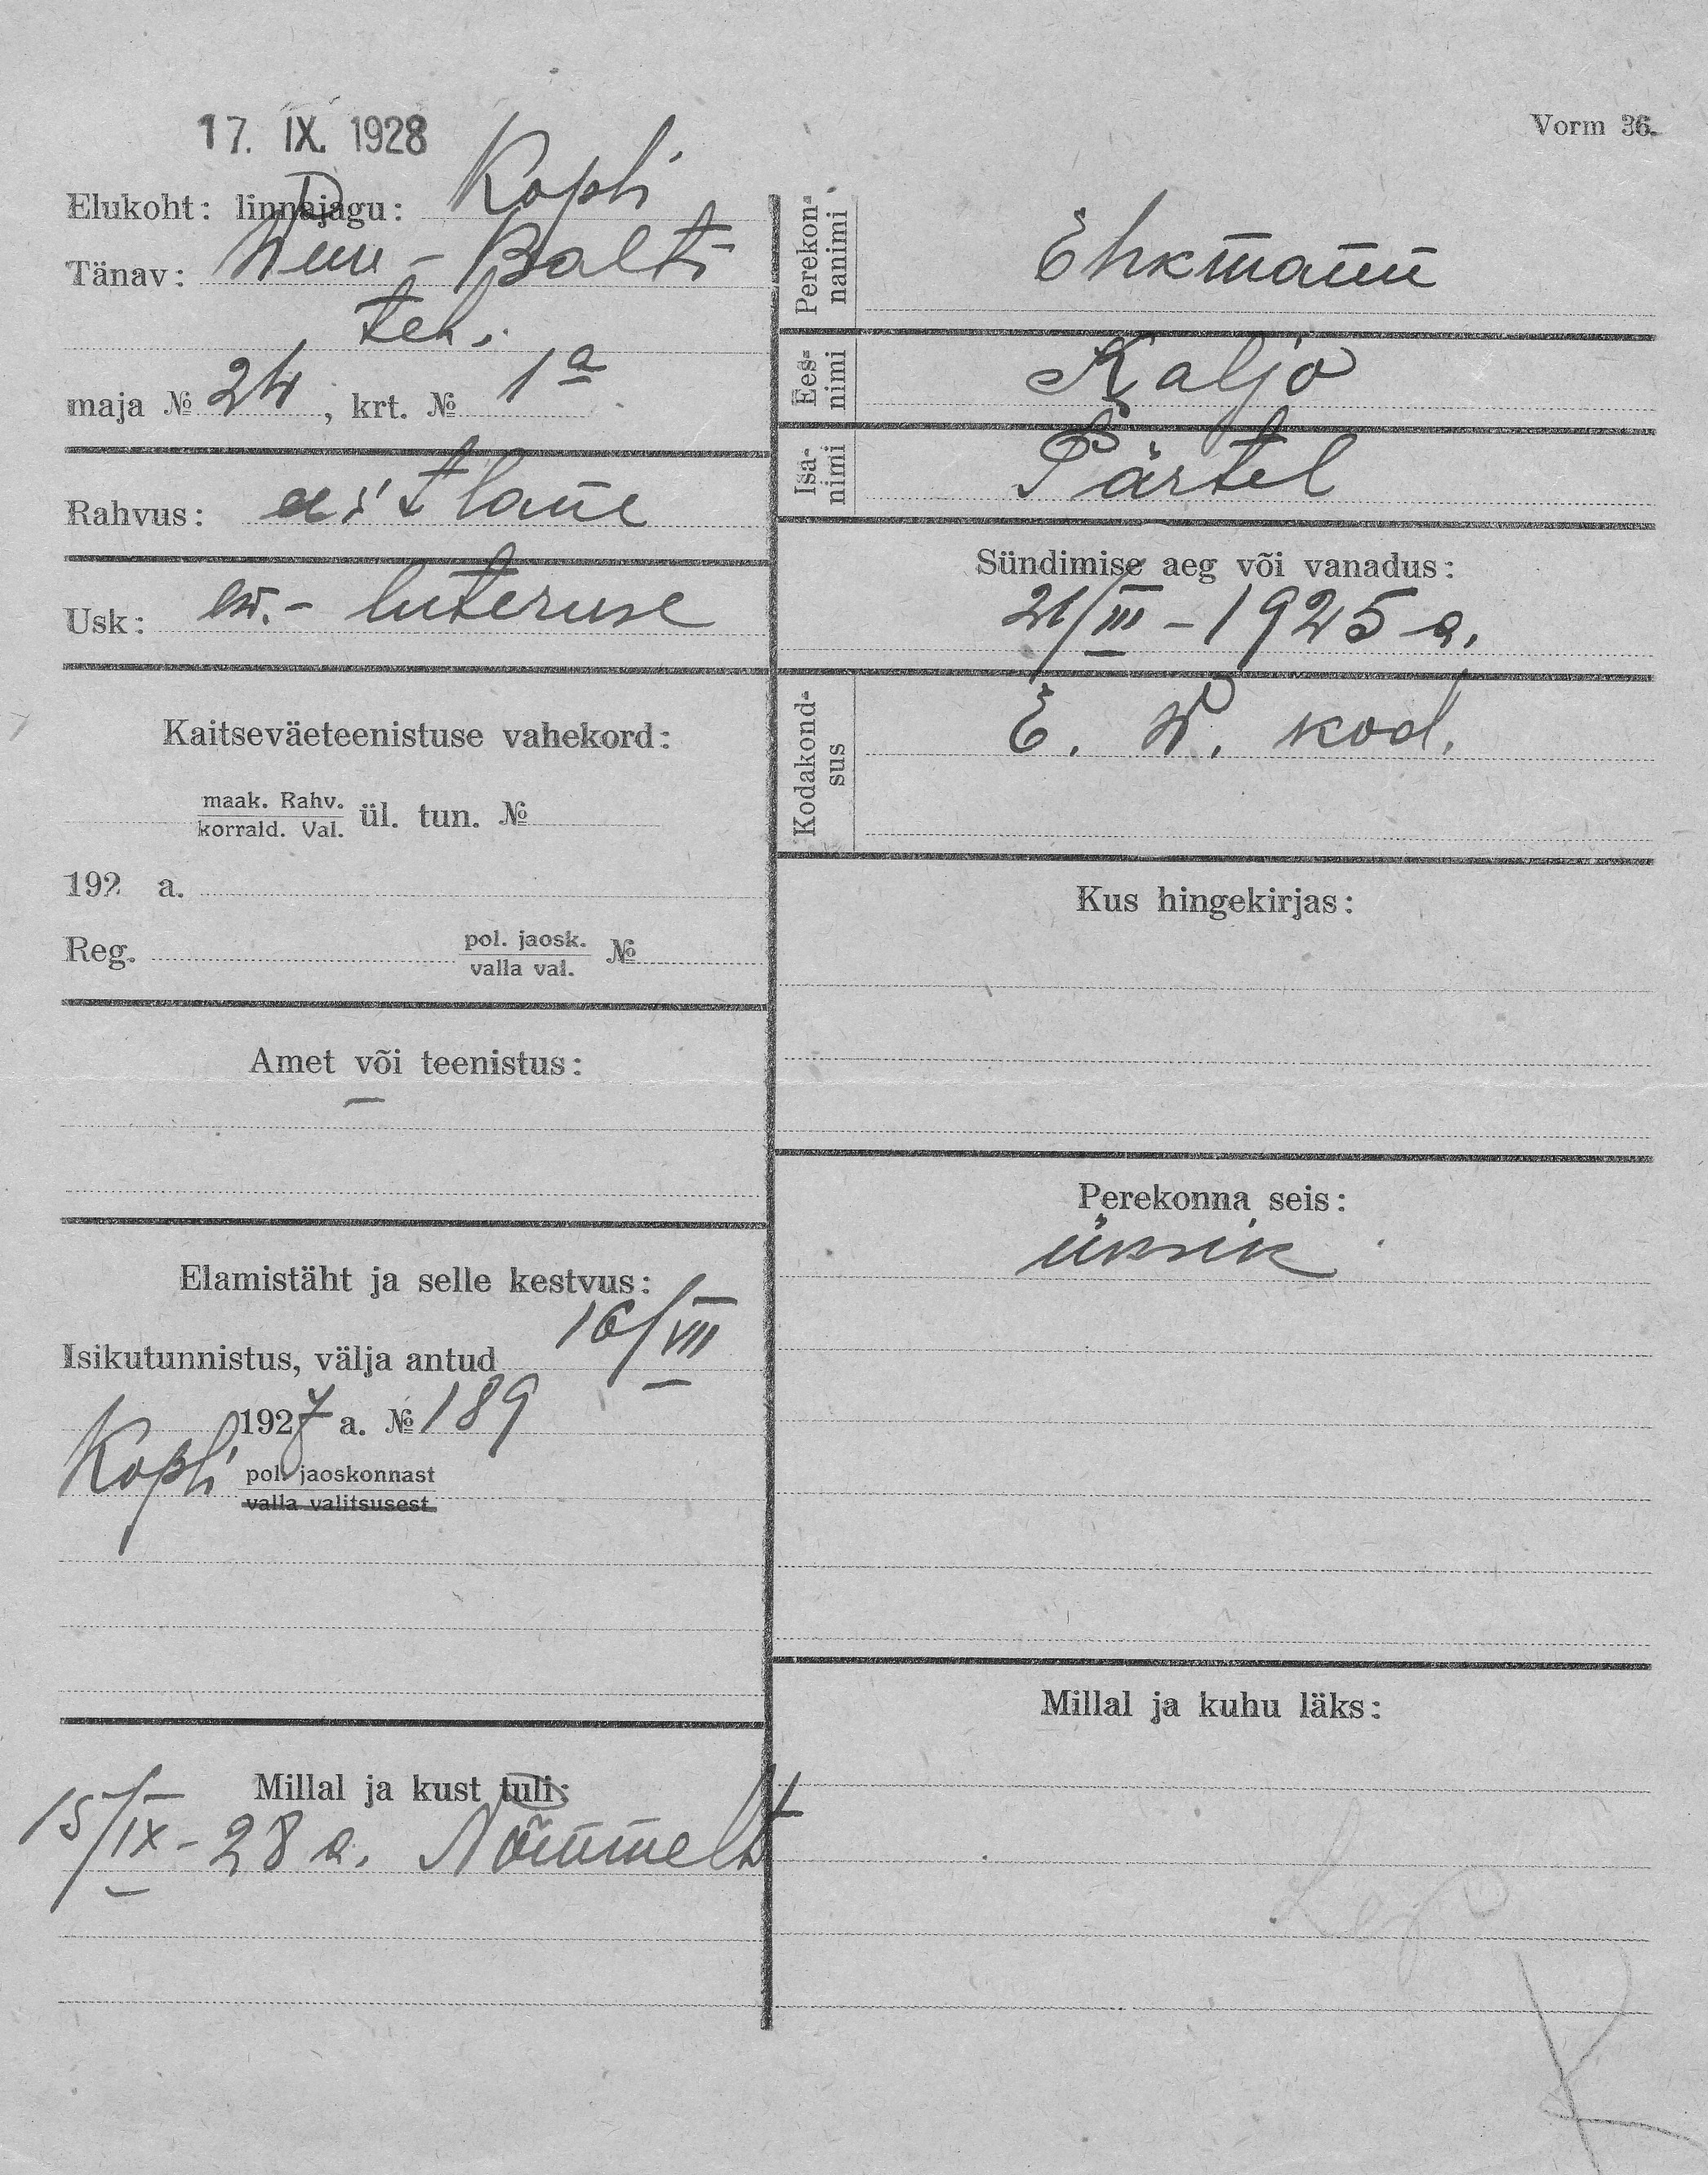 17. IX. 1928
Vorm 36.
Elukoht: linnajagu: Kopli
Tänav: Wene-Balti
teh.
maja № 24, krt. № 1a
Rahvus: eestlane
Usk: ev.- luteruse
Kaitseväeteenistuse vahekord:
maak. Rahv.
korrald. Val. ül. tun. №
192 a.
Reg. pol. jaosk.
valla val. №
Amet või teenistus:
—
Elamistäht ja selle kestvus:
Isikutunnistus, välja antud 16/VIII
1927 a. № 189
Kopli pol. jaoskonnast
valla valitsusest
Millal ja kust tuli:
15/IX-28 a. Nõmmelt
Perekon-
nanimi Ehkmann
Ees-
nimi Kaljo
Isa-
nimi Pärtel
Sündimise aeg või vanadus:
21/III-1925 a.
Kodakond-
sus E. W. kod.
Kus hingekirjas:
Perekonna seis:
üksik
Millal ja kuhu läks: